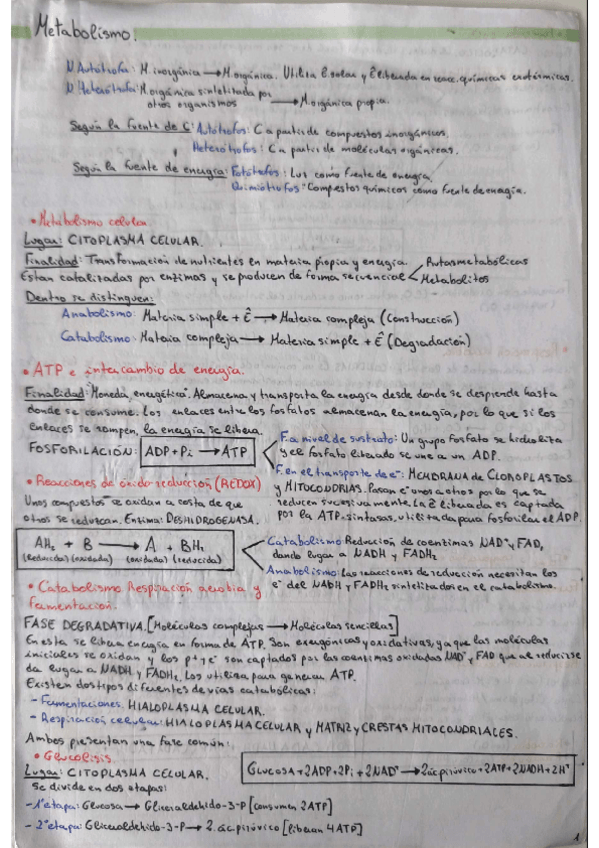 Metabolismo.
N Autótrofa: M. inorgánica → M. orgánica. Utiliza E. solar y E liberada en reacc. químicas exotérmicas.
N Heterótrofa: M. orgánica sintetizada por
otros organismos → M. orgánica propia.
Según la fuente de C: Autótrofos: C a partir de compuestos inorgánicos.
Heterótrofos: C a partir de moléculas orgánicas.
Según la fuente de energía: Fotótrofos: Luz como fuente de energía.
Quimiótrofos: Compuestos químicos como fuente de energía.
• Metabolismo celular
Lugar: CITOPLASMA CELULAR.
Finalidad: Transformación de nutrientes en materia propia y energía.
Están catalizadas por enzimas y se producen de forma secuencial < Rutas metabólicas
Metabolitos
Dentro se distinguen:
Anabolismo: Materia simple + E → Materia compleja (Construcción)
Catabolismo: Materia compleja → Materia simple + E (Degradación)
• ATP e intercambio de energía.
Finalidad: "Moneda energética". Almacena y transporta la energía desde donde se desprende hasta
donde se consume. Los enlaces entre los fosfatos almacenan la energía, por lo que si los
enlaces se rompen, la energía se libera.
FOSFORILACIÓN: ADP + Pi → ATP
F. a nivel de sustrato: Un grupo fosfato se hidroliza
y el fosfato liberado se une a un ADP.
F. en el transporte de e⁻: MEMBRANA de CLOROPLASTOS
y MITOCONDRIAS. Pasan e⁻ unos a otros por lo que se
reducen sucesivamente. La E liberada es captada
por la ATP-sintasas, utilizada para fosforilar el ADP.
• Reacciones de óxido-reducción (REDOX)
Unos compuestos se oxidan a costa de que
otros se reduzcan. Enzima: DESHIDROGENASA.
AH₂ + B → A + BH₂
(reducida) (oxidada) (oxidada) (reducida)
Catabolismo: Reducción de coenzimas NAD⁺ y FAD,
dando lugar a NADH y FADH₂
Anabolismo: Las reacciones de reducción necesitan los
e⁻ del NADH y FADH₂ sintetizados en el catabolismo.
• Catabolismo. Respiración aerobia y
fermentación.
FASE DEGRADATIVA. [Moléculas complejas → Moléculas sencillas]
En esta se libera energía en forma de ATP. Son exergónicas y oxidativas, ya que las moléculas
iniciales se oxidan y los p⁺ y e⁻ son captados por las coenzimas oxidadas NAD⁺ y FAD que al reducirse
da lugar a NADH y FADH₂. Los utiliza para generar ATP.
Existen dos tipos diferentes de vías catabólicas:
- Fermentaciones: HIALOPLASMA CELULAR.
- Respiración celular: HIALOPLASMA CELULAR y MATRIZ y CRESTAS MITOCONDRIALES.
Ambos presentan una fase común:
• Glucólisis.
Lugar: CITOPLASMA CELULAR.
Glucosa + 2ADP + 2Pi + 2NAD⁺ → 2 ác. pirúvico + 2ATP + 2NADH + 2H⁺
Se divide en dos etapas:
- 1ª etapa: Glucosa → Gliceraldehído-3-P [consumen 2ATP]
- 2ª etapa: Gliceraldehído-3-P → 2 ác. pirúvico [liberan 4ATP]
1